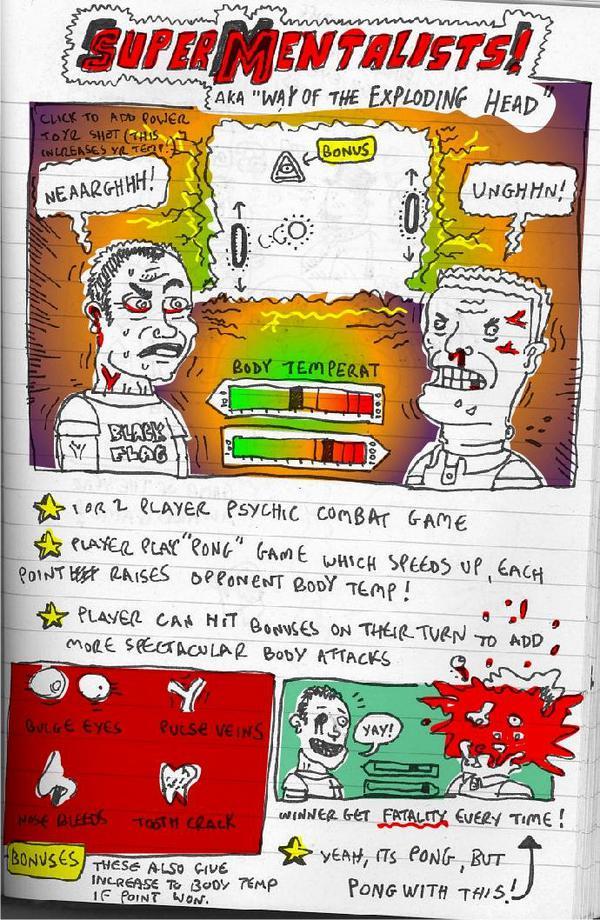 SUPER MENTALISTS!
AKA "WAY OF THE EXPLODING HEAD"
CLICK TO ADD POWER
TO YR SHOT (THIS
INCREASES YR TEMP.)
BONUS
NEAARGHHH!
UNGHHN!
BODY TEMPERAT
BLACK
FLAG
1 OR 2 PLAYER PSYCHIC COMBAT GAME
PLAYER PLAY "PONG" GAME WHICH SPEEDS UP, EACH
POINT RAISES OPPONENT BODY TEMP!
PLAYER CAN HIT BONUSES ON THEIR TURN TO ADD
MORE SPECTACULAR BODY ATTACKS
BULGE EYES
PULSE VEINS
NOSE BLEEDS
TOOTH CRACK
BONUSES
THESE ALSO GIVE
INCREASE TO BODY TEMP
IF POINT WON.
YAY!
WINNER GET FATALITY EVERY TIME!
YEAH, ITS PONG, BUT
PONG WITH THIS!